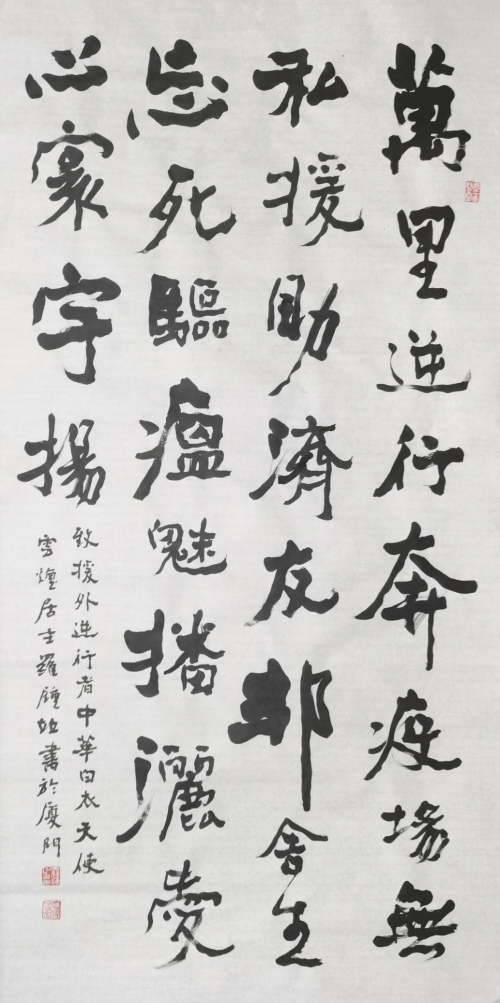 萬里逆行奔疫場無
私援助濟友邦舍生
忘死驅瘟魅播灑愛
心寰宇揚
致援外逆行者中華白衣天使
雪煙居士羅鍾書於廈門